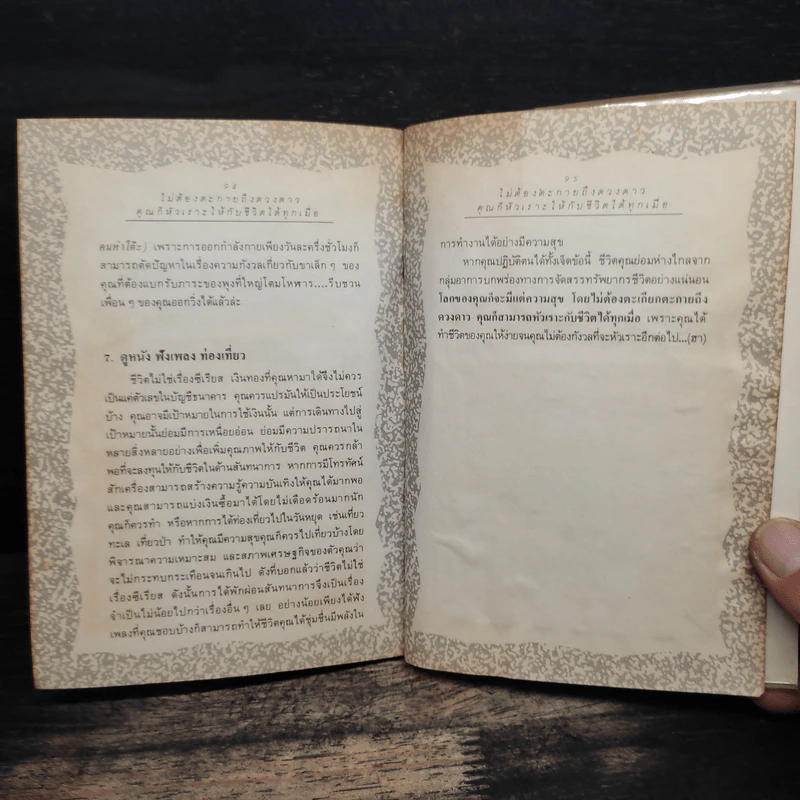 94
ไม่ต้องตะกายถึงดวงดาว
คุณก็หัวเราะให้กับชีวิตได้ทุกเมื่อ
คนห่างโต๊ะ) เพราะการออกกำลังกายเพียงวันละครึ่งชั่วโมงก็
สามารถตัดปัญหาในเรื่องความกังวลเกี่ยวกับขาเล็ก ๆ ของ
คุณที่ต้องแบกรับภาระของพุงที่ใหญ่โตมโหฬาร....รีบชวน
เพื่อน ๆ ของคุณออกวิ่งได้แล้วล่ะ
7. ดูหนัง ฟังเพลง ท่องเที่ยว
ชีวิตไม่ใช่เรื่องซีเรียส เงินทองที่คุณหามาได้จึงไม่ควร
เป็นแค่ตัวเลขในบัญชีธนาคาร คุณควรแปรมันให้เป็นประโยชน์
บ้าง คุณอาจมีเป้าหมายในการใช้เงินนั้น แต่การเดินทางไปสู่
เป้าหมายนั้นย่อมมีการเหนื่อยอ่อน ย่อมมีความปรารถนาใน
หลายสิ่งหลายอย่างเพื่อเพิ่มคุณภาพให้กับชีวิต คุณควรกล้า
พอที่จะลงทุนให้กับชีวิตในด้านสันทนาการ หากการมีโทรทัศน์
สักเครื่องสามารถสร้างความรู้ความบันเทิงให้คุณได้มากพอ
และคุณสามารถแบ่งเงินซื้อมาได้โดยไม่เดือดร้อนมากนัก
คุณก็ควรทำ หรือหากการได้ท่องเที่ยวไปในวันหยุด เช่นเที่ยว
ทะเล เที่ยวป่า ทำให้คุณมีความสุขคุณก็ควรไปเที่ยวบ้างโดย
พิจารณาความเหมาะสม และสภาพเศรษฐกิจของตัวคุณว่า
จะไม่กระทบกระเทือนจนเกินไป ดังที่บอกแล้วว่าชีวิตไม่ใช่
เรื่องซีเรียส ดังนั้นการได้พักผ่อนสันทนาการจึงเป็นเรื่อง
จำเป็นไม่น้อยไปกว่าเรื่องอื่น ๆ เลย อย่างน้อยเพียงได้ฟัง
เพลงที่คุณชอบบ้างก็สามารถทำให้ชีวิตคุณได้ชุ่มชื่นมีพลังใน
95
ไม่ต้องตะกายถึงดวงดาว
คุณก็หัวเราะให้กับชีวิตได้ทุกเมื่อ
การทำงานได้อย่างมีความสุข
หากคุณปฏิบัติตนได้ทั้งเจ็ดข้อนี้ ชีวิตคุณย่อมห่างไกลจาก
กลุ่มอาการบกพร่องทางการจัดสรรทรัพยากรชีวิตอย่างแน่นอน
โลกของคุณก็จะมีแต่ความสุข โดยไม่ต้องตะเกียกตะกายถึง
ดวงดาว คุณก็สามารถหัวเราะกับชีวิตได้ทุกเมื่อ เพราะคุณได้
ทำชีวิตของคุณให้ง่ายจนคุณไม่ต้องกังวลที่จะหัวเราะอีกต่อไป...(ฮา)